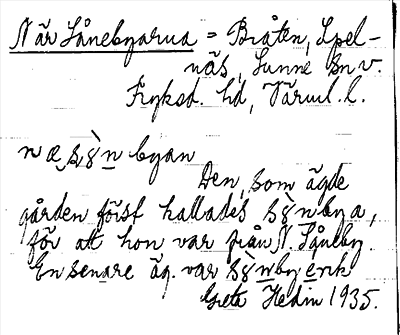 När Lånebyarna = Bråten, Spel-
näs, Sunne sn v.
Fryksd. hd, Värml. l.
Den, som ägde
gården först kallades
för att hon var från N. Låneby.
En senare äg. var
Greta Hedin 1935.